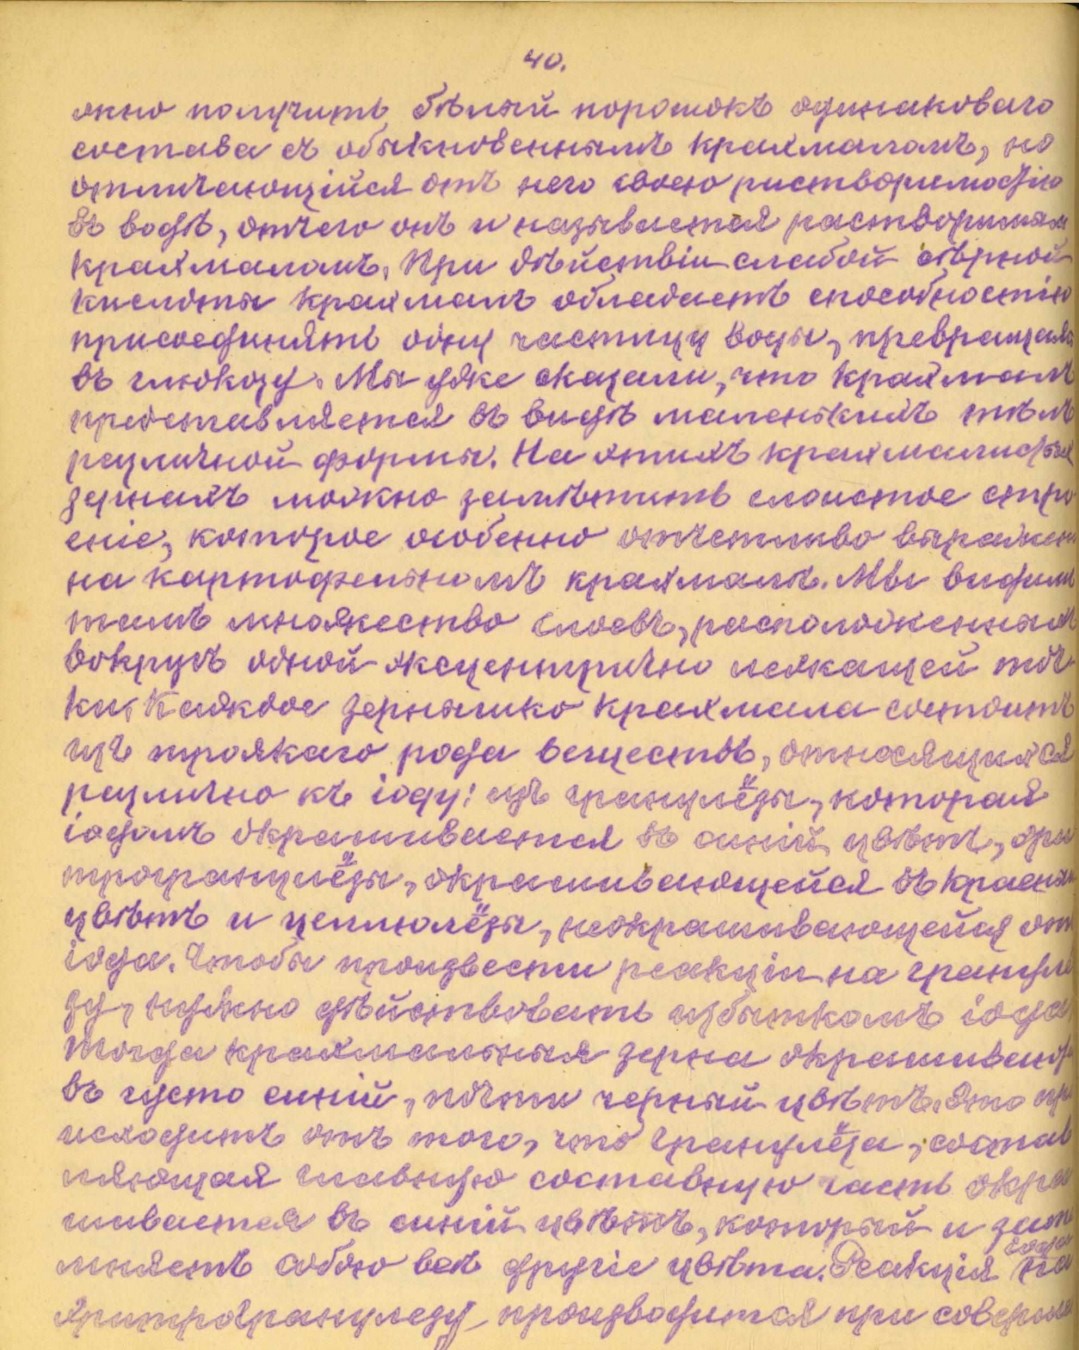 40.
ожно получить бѣлый порошокъ одинаковаго
состава съ обыкновеннымъ крахмаломъ, но
отличающійся отъ него своею растворимостію
въ водѣ, отчего онъ и называется растворимым
крахмаломъ. При дѣйствіи слабой сѣрной
кислоты крахмалъ обладаетъ способностію
присоединять одну частицу воды, превращаяс
въ глюкозу. Мы уже сказали, что крахмалъ
представляется въ видѣ маленькихъ тѣлъ
различной формы. На этихъ крахмалистых
зернахъ можно замѣтить слоистое стро
еніе, которое особенно отчетливо выражен
на картофельномъ крахмалѣ. Мы видимъ
тамъ множество слоевъ, расположенныхъ
вокругъ одной эксцентрично лежащей точ
ки. Каждое зернышко крахмала состоитъ
изъ троякаго рода веществъ, относящихся
различно къ іоду: изъ гранулёзы, которая
іодомъ окрашивается въ синій цвѣтъ, эри
трогранулёзы, окрашивающейся въ красный
цвѣтъ и целлюлёзы, неокрашивающейся отъ
іода. Чтобы произвести реакцію на гранулё
зу, нужно дѣйствовать избыткомъ іода,
тогда крахмальныя зерна окрашивают
въ густо синій, почти черный цвѣтъ. Это пр
исходитъ отъ того, что гранулёза, состав
ляющая главную составную часть окра
шивается въ синій цвѣтъ, который и зат
мняетъ собою всѣ другіе цвѣта. Реакція на
эритрогранулезу производится при соверше